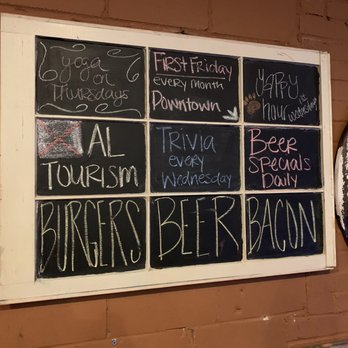 Yoga
on
Thursdays
First Friday
every month
Downtown
YAPPY
hour
1st
Wednesdays
AL
TOURISM
TRIVIA
every
Wednesday
Beer
Specials
Daily
BURGERS
BEER
BACON